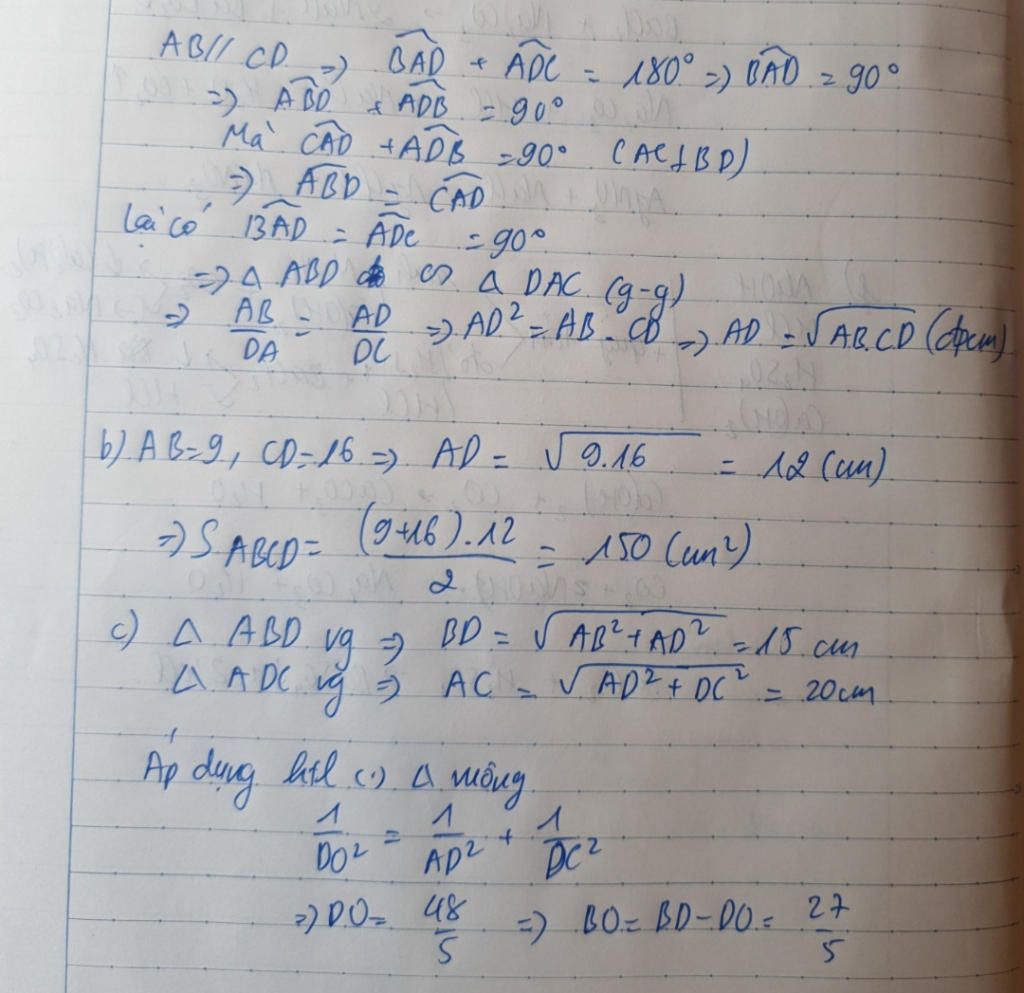 AB // CD => BAD + ADC = 180° => BAD = 90°
=> ABD + ADB = 90°
Mà CAD + ADB = 90° (AC ⊥ BD)
=> ABD = CAD
Lại có BAD = ADC = 90°
=> Δ ABD ∽ Δ DAC (g-g)
=> AB/DA = AD/DC => AD² = AB.CD => AD = √AB.CD (đpcm)
b) AB=9, CD=16 => AD = √9.16 = 12 (cm)
=> S ABCD = (9+16).12/2 = 150 (cm²)
c) Δ ABD vg => BD = √AB²+AD² = 15 cm
Δ ADC vg => AC = √AD²+DC² = 20cm
Áp dụng htl (.) Δ vuông
1/DO² = 1/AD² + 1/DC²
=> DO = 48/5 => BO = BD - DO = 27/5